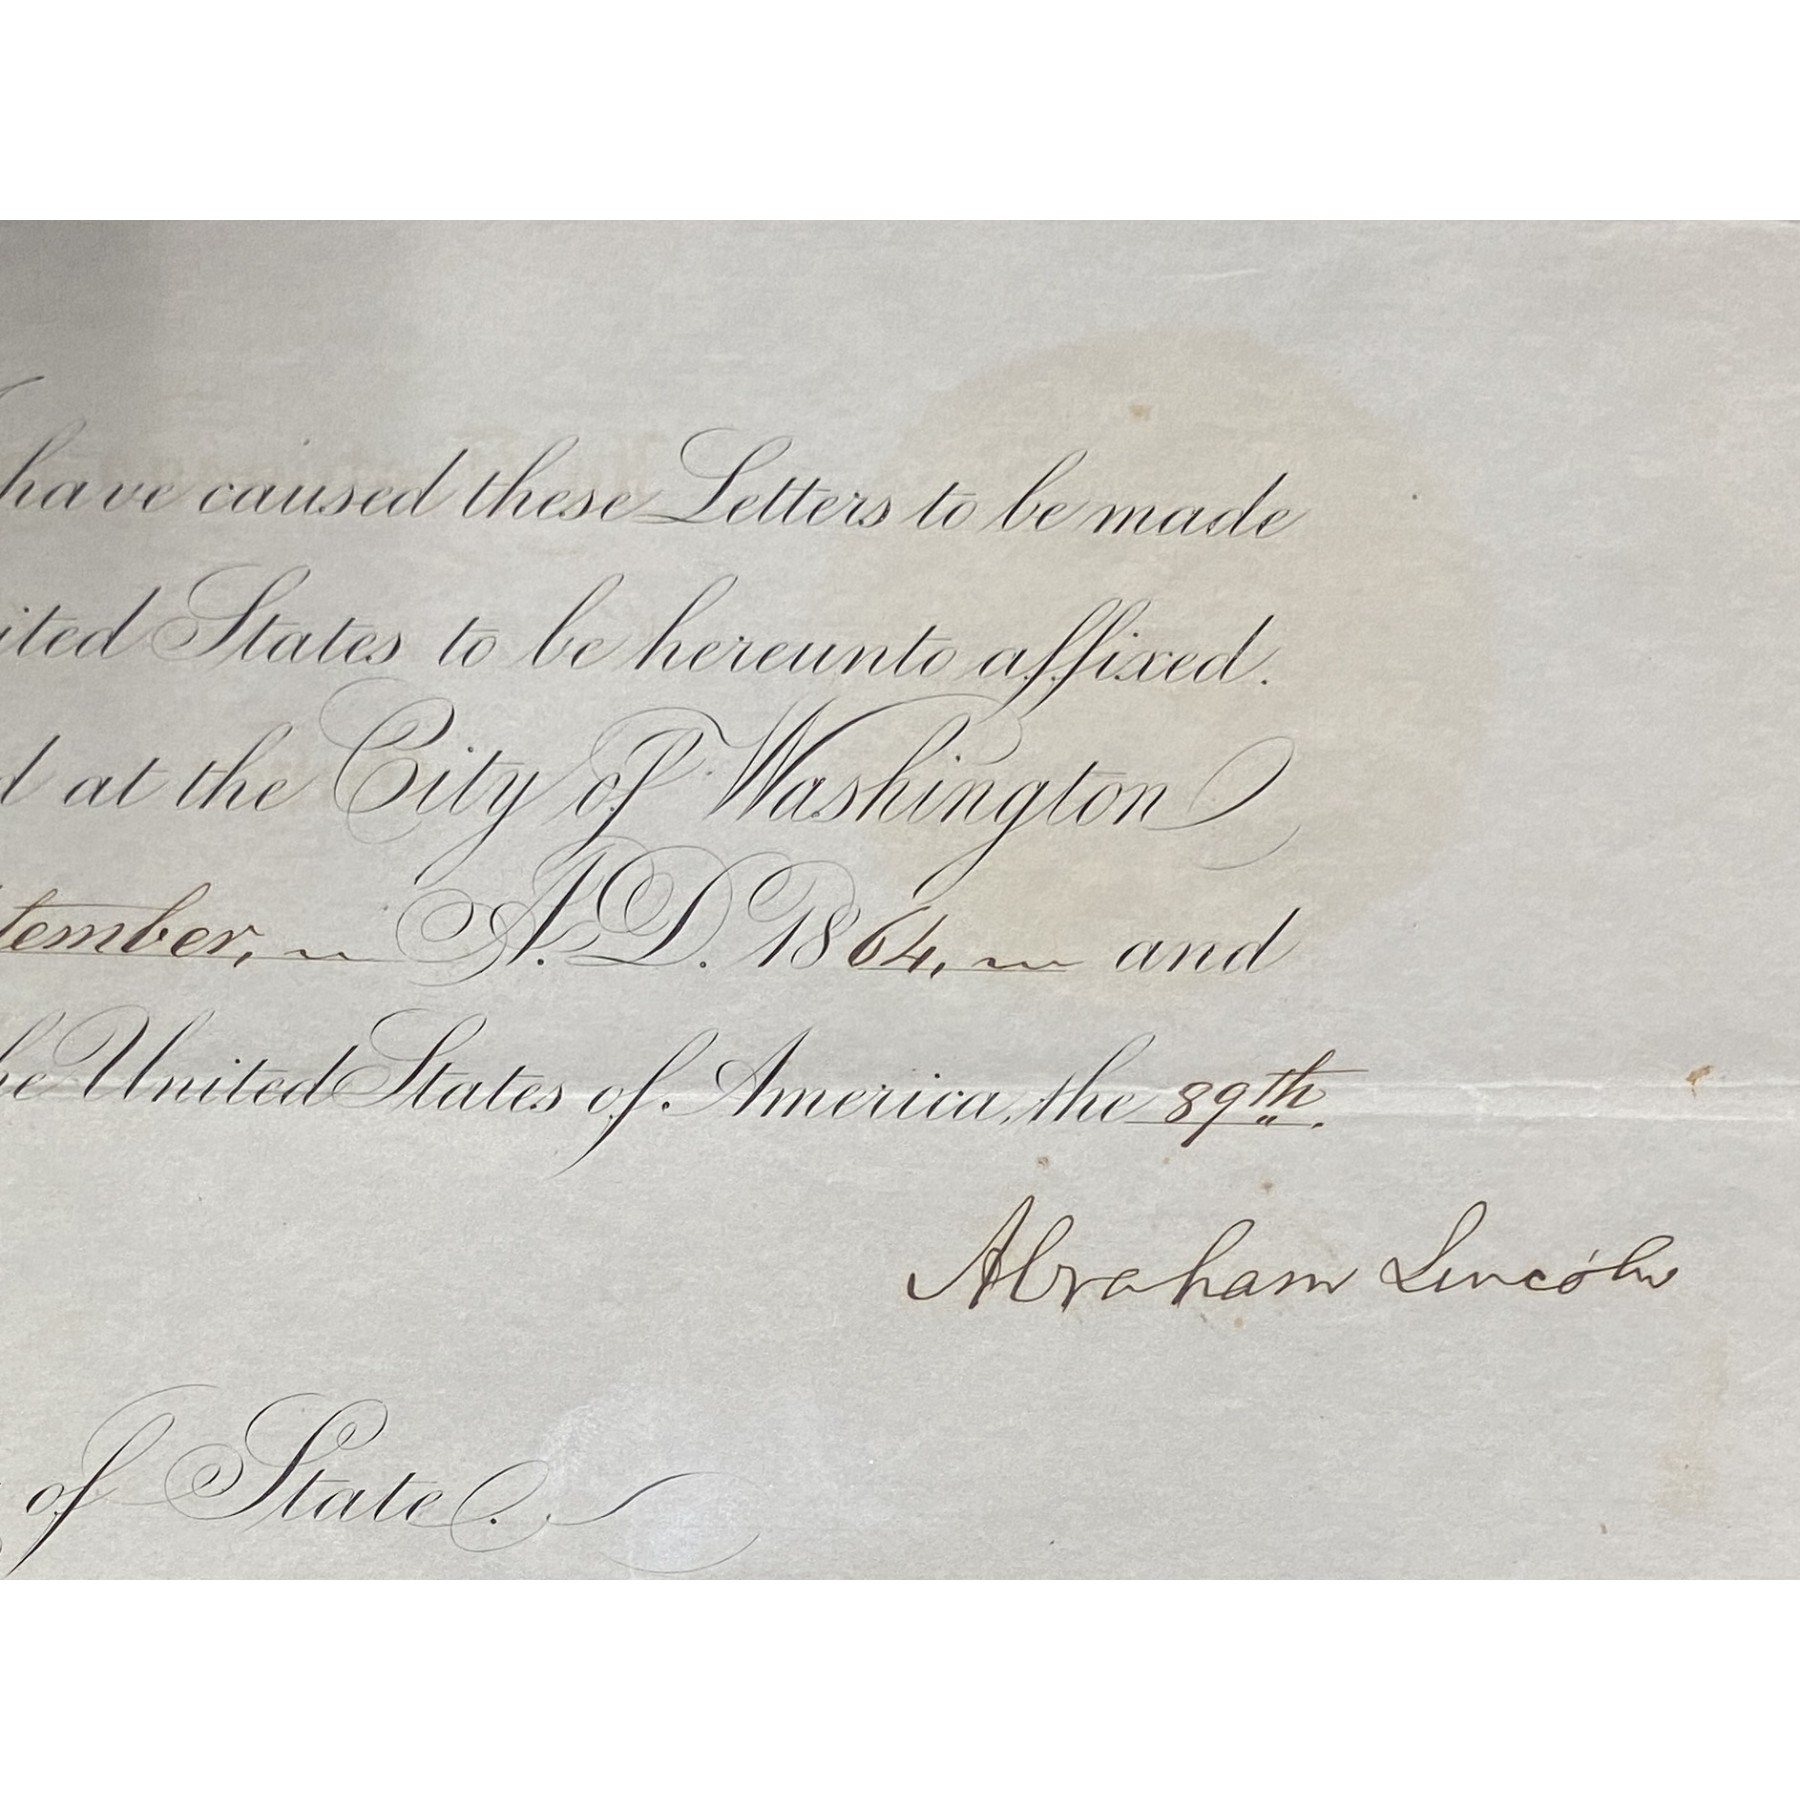 have caused these Letters to be made
ited States to be hereunto affixed.
d at the City of Washington
tember, A.D. 1864, and
he United States of America, the 89th.
Abraham Lincoln
of State.